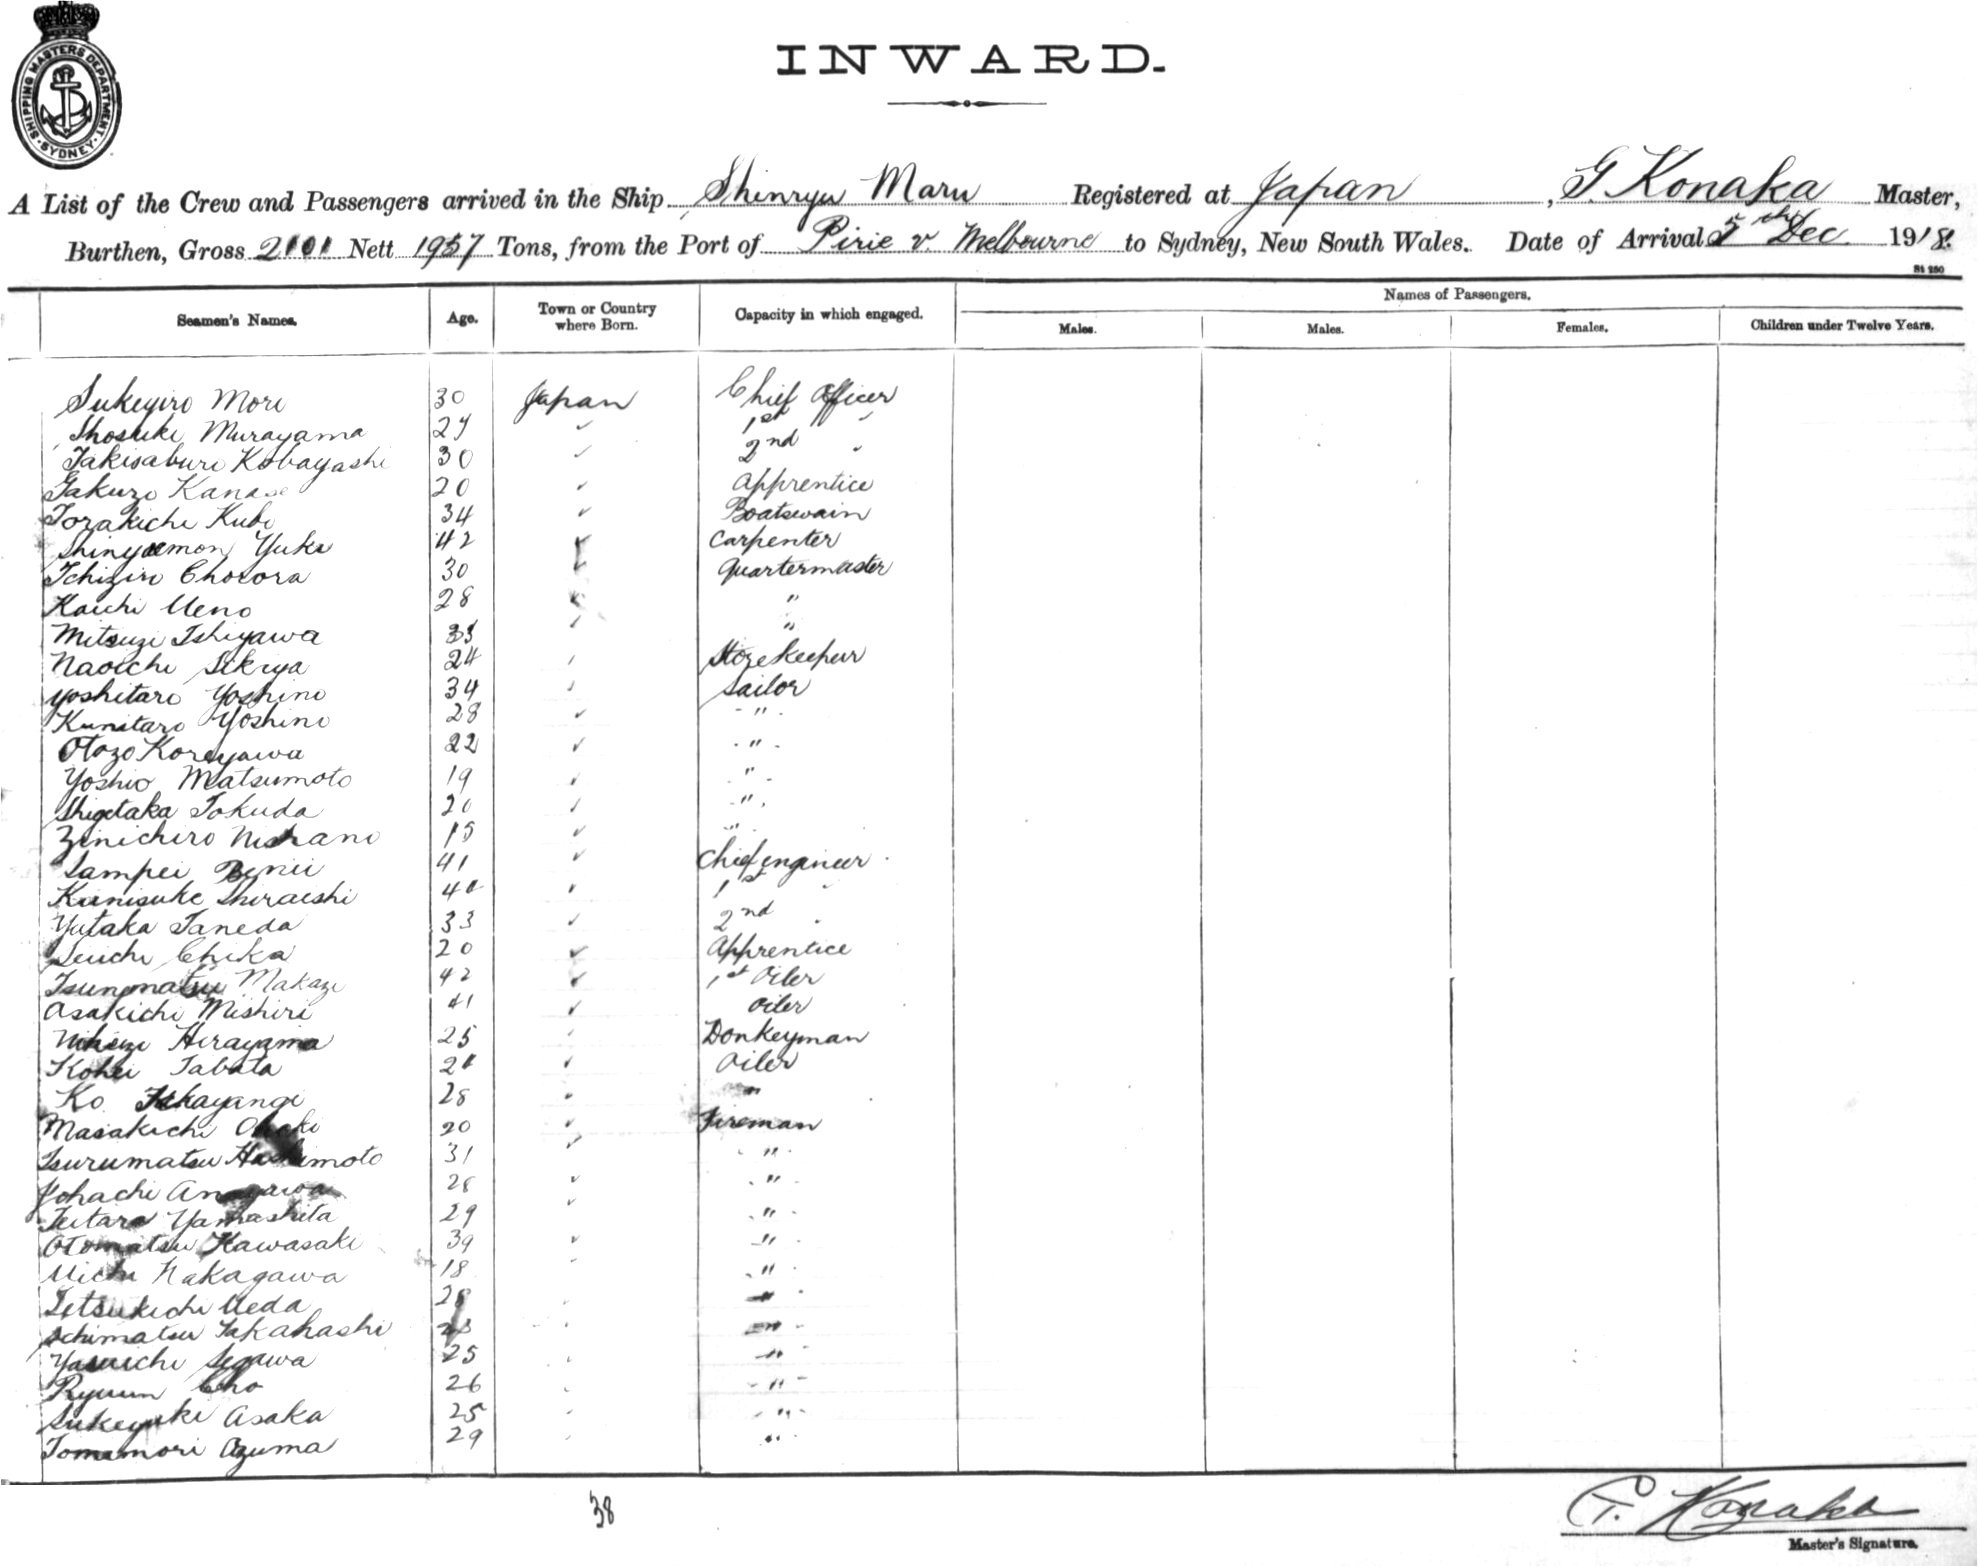 SHIPPING MASTERS DEPARTMENT
SYDNEY
INWARD.
A List of the Crew and Passengers arrived in the Ship Shinryu Maru Registered at Japan, G. Konaka Master,
Burthen, Gross 2101 Nett 1957 Tons, from the Port of Pirie v. Melbourne to Sydney, New South Wales. Date of Arrival 5th Dec 1918.
St 250
Seamen's Names. Age. Town or Country where Born. Capacity in which engaged. Names of Passengers.
Males. Males. Females. Children under Twelve Years.
Sukeyiro Mori 30 Japan Chief Officer
Shosuke Murayama 29 " 1st "
Takisaburo Kobayashi 30 " 2nd "
Gakuzo Kanase 20 " Apprentice
Torakichi Kubo 34 " Boatswain
Shinyemon Yuki 42 " Carpenter
Ichiziro Chosora 30 " Quartermaster
Kaichi Ueno 28 " "
Mitsuzi Ishiyawa 35 " "
Naoichi Sekiya 24 " Storekeeper
Yoshitaro Yoshino 34 " Sailor
Kunitaro Yoshino 28 " "
Otozo Koreyawa 22 " "
Yoshio Matsumoto 19 " "
Shigetaka Tokuda 20 " "
Zenichiro 19 " "
Sampei 41 " Chief engineer
Kunisuke Shiraishi 40 " 1st "
Yutaka Taneda 33 " 2nd "
Seiichi Chika 20 " Apprentice
Tsunematsu Makazi 42 " 1st Oiler
Asakichi Mishiri 41 " Oiler
Hirayama 25 " Donkeyman
Kohei Tabata 21 " Oiler
Ko Takayangi 28 " "
Masakichi 20 " Fireman
Tsurumatsu Hashimoto 31 " "
Yohachi 28 " "
Teitaro Yamashita 29 " "
Otomatsu Kawasaki 39 " "
Uichi Nakagawa 18 " "
Tetsukichi Ueda 28 " "
Ichimatsu Takahashi 23 " "
Yasuichi Segawa 25 " "
Ryuun Cho 26 " "
Sukeyuki Asaka 25 " "
Tomomori Azuma 29 " "
38
G. Konaka
Master's Signature.